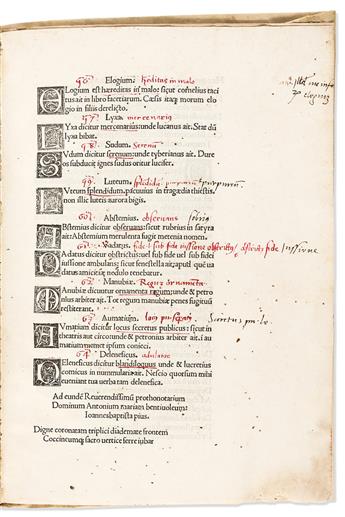 Elogium. hæditas in malo
ELogium est hæreditas in malo: sicut cornelius taci
tus ait in libro facetiarum. Cæsis itaq; morum elo
gio in filiis derelicto.
Lyxa mercenario
LYxa dicitur mercenarius: unde lucanus ait. Stat dū
lyxa bibat.
98 Sudum. Serenum
SVdum dicitur serenum: unde tyberianus ait. Dure
os subducit ignes sudus oritur lucifer.
99 Luteum. splendidū purpureum
LVteum splendidum. pacuuius in tragœdia thiestis.
non illic luteis aurora bigis.
Abstemius observans
ABstemius dicitur obseruans: sicut rubrius in satyra
ait: Abstemium merulenta fugit metenia nomen.
Vadatus. fide l sub fide iussione obstrictus
VAdatus dicitur obstrictus: uel sub fide uel sub fidei
iussione ambulans; sicut in fenestella ait; apud quē ua
datus amicitiæ nodulo tenebatur.
62 Manubiæ. Regum ornamēta
MAnubiæ dicuntur ornamenta regum: unde & petro
nius arbiter ait. Tot regum manubiæ penes fugitiuū
restiterant.
63 Aumatium.
AVmatium dicitur locus secretus publicus: sicut in
theatris aut circo: unde & petronius arbiter ait. i au
matium memet ipsum conieci.
Secretus
64 Delenesicus. adulator
DElenesicus dicitur blandiloquus: unde & lucretius
comicus in nummularia ait. Nescio quorsum mihi
eueniant tua uerba tam delenesica.
Ad eundē Reuerendissimū prothonotarium
Dominum Antonium mariam bentiuoleum:
Ioannesbaptista pius.
Digne coronatam triplici diademate frontem
Coccineumq; sacro uertice ferre iubar